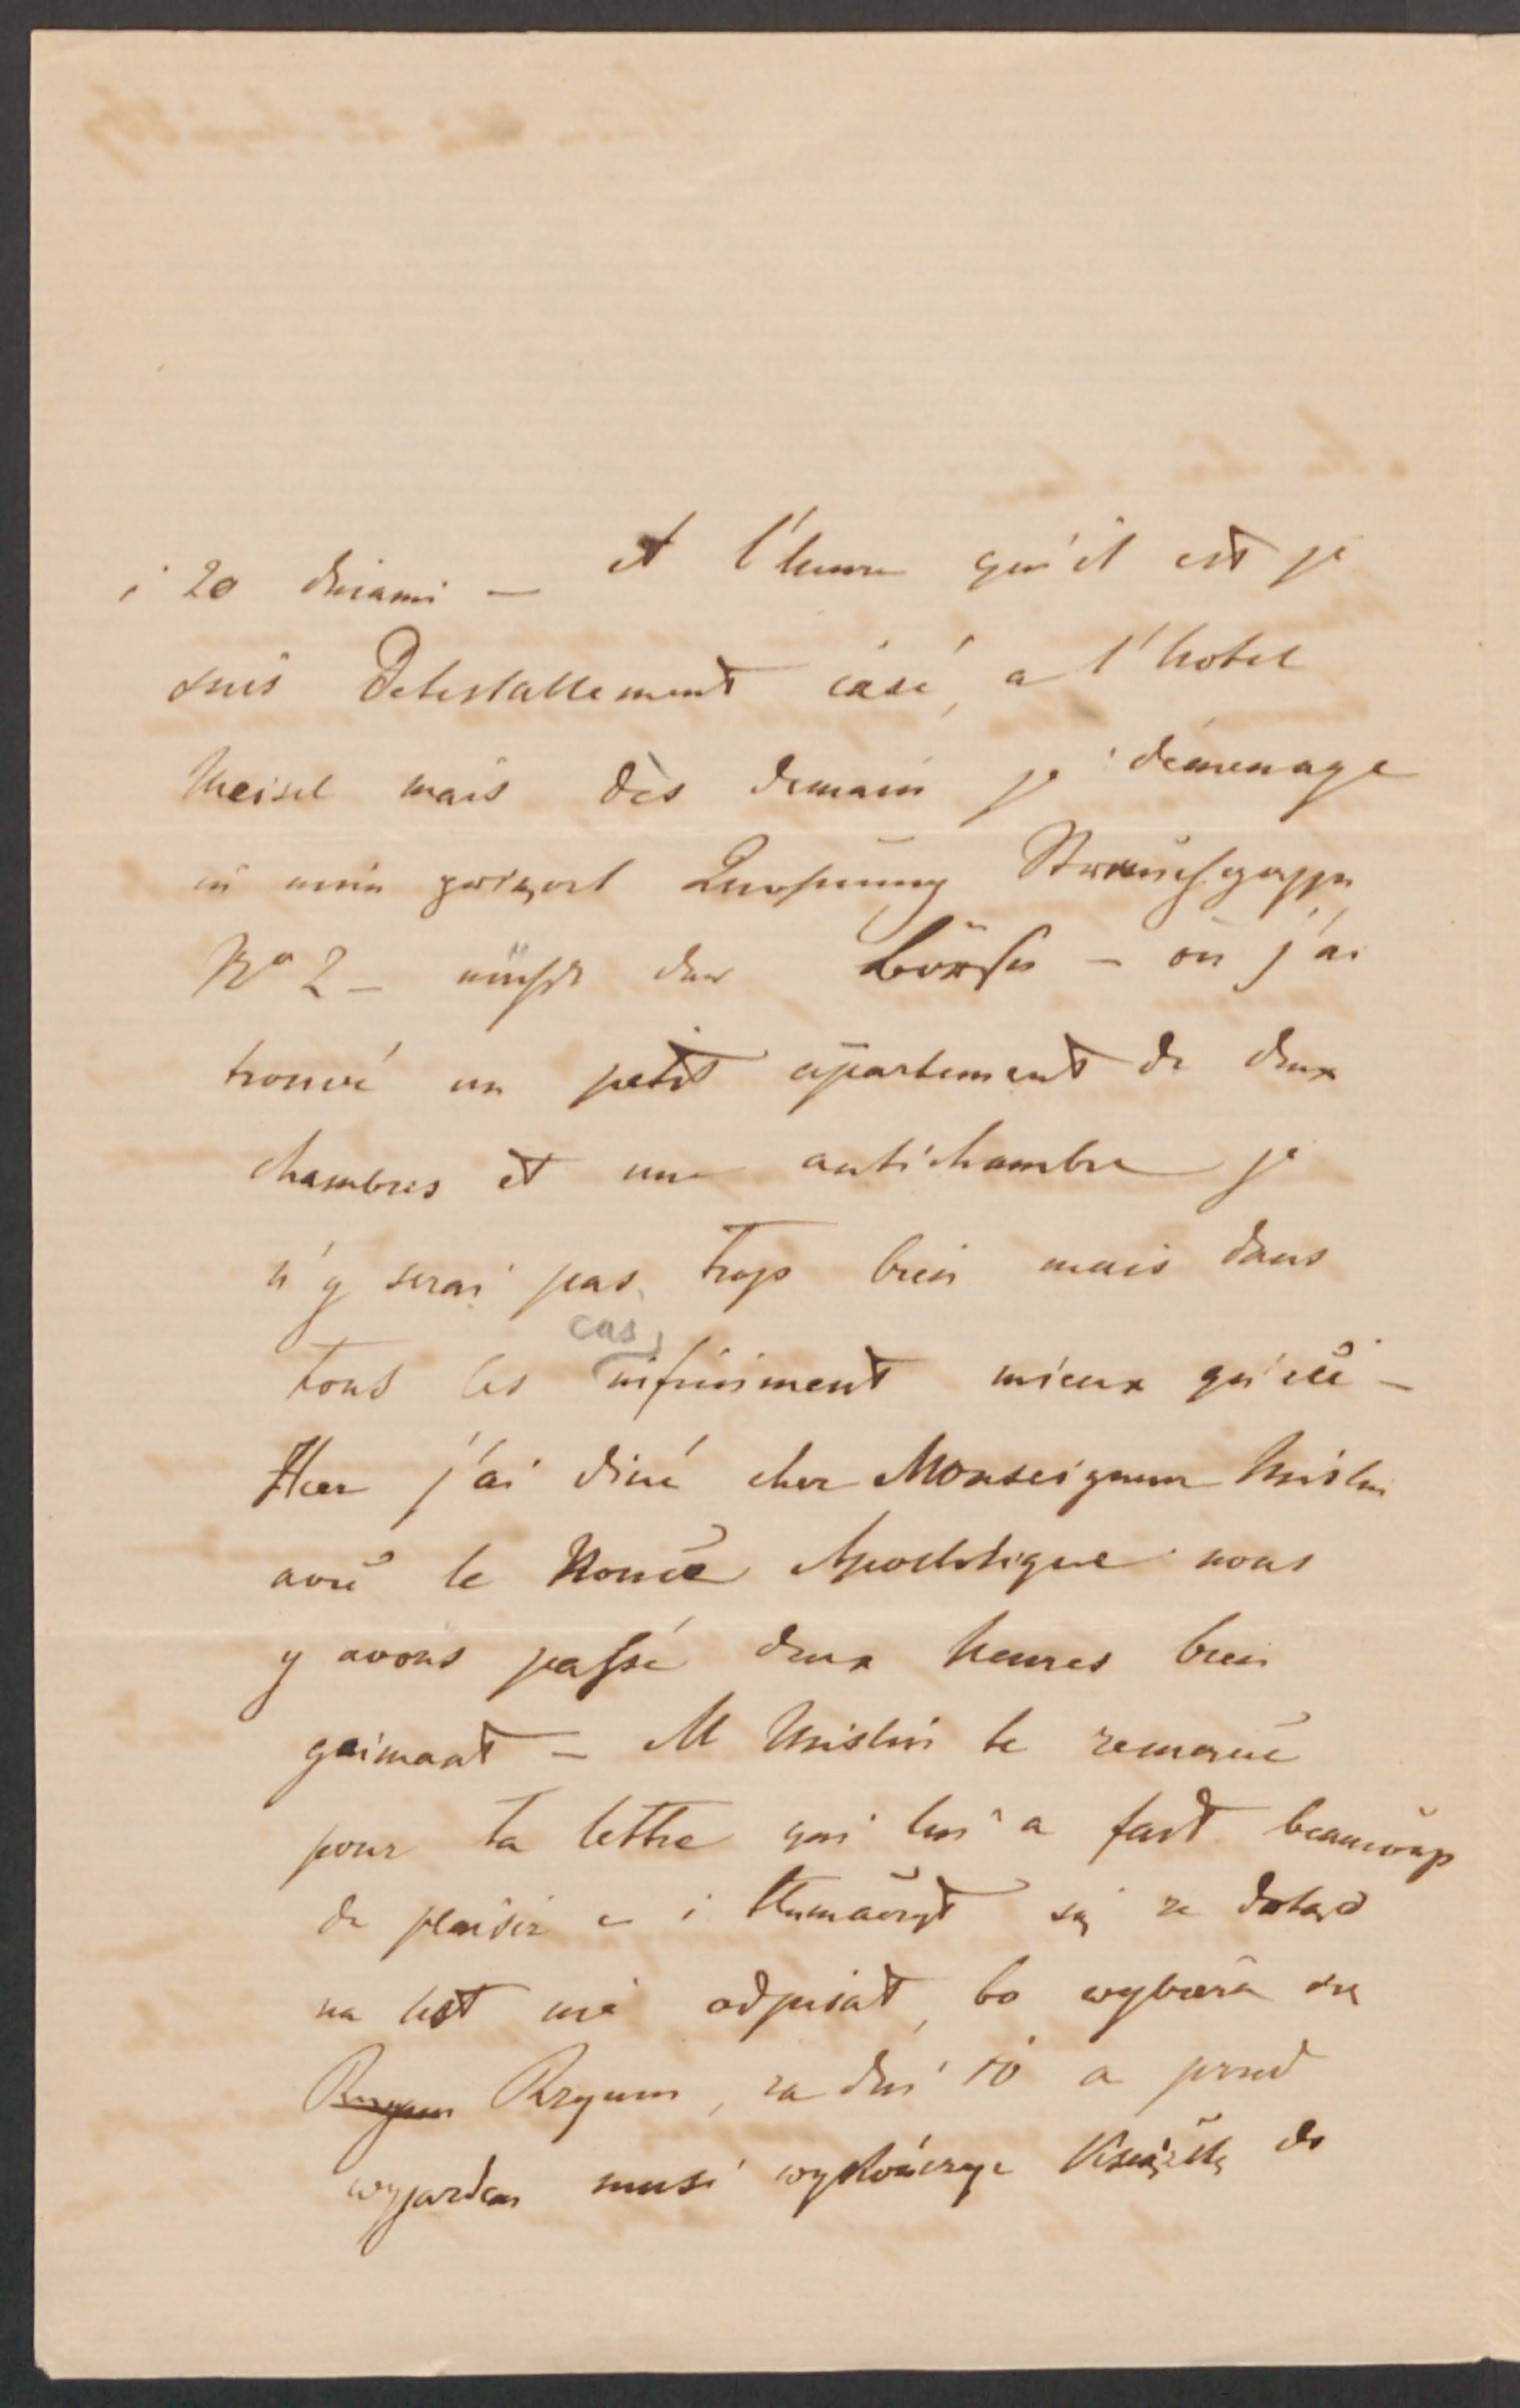 i 20 dniami — et l'heure qu'il est je
suis Detestablement casé, a l'hotel
Meisel mais dès demain je démenage
in mein Strauchgasse
No 2 — nächst der Börse — où j'ai
trouvé un petit apartement de deux
chambres et une antichambre je
n'y serai pas trop bien mais dans
tous les cas infiniment mieux qu'ici —
Hier j'ai diné chez Monseigneur Mislin
avec le Nonce Apostolique nous
y avons passé deux heures bien
gaimant — M Mislin te remercie
pour ta lettre qui lui a fait beaucoup
de plaisir i tłumaczył się że dotąd
na list nie odpisał, bo wybiera się
Rzymu Rzymu, za dni 10 a przed
wyjazdem musi wykończyć Książkę do